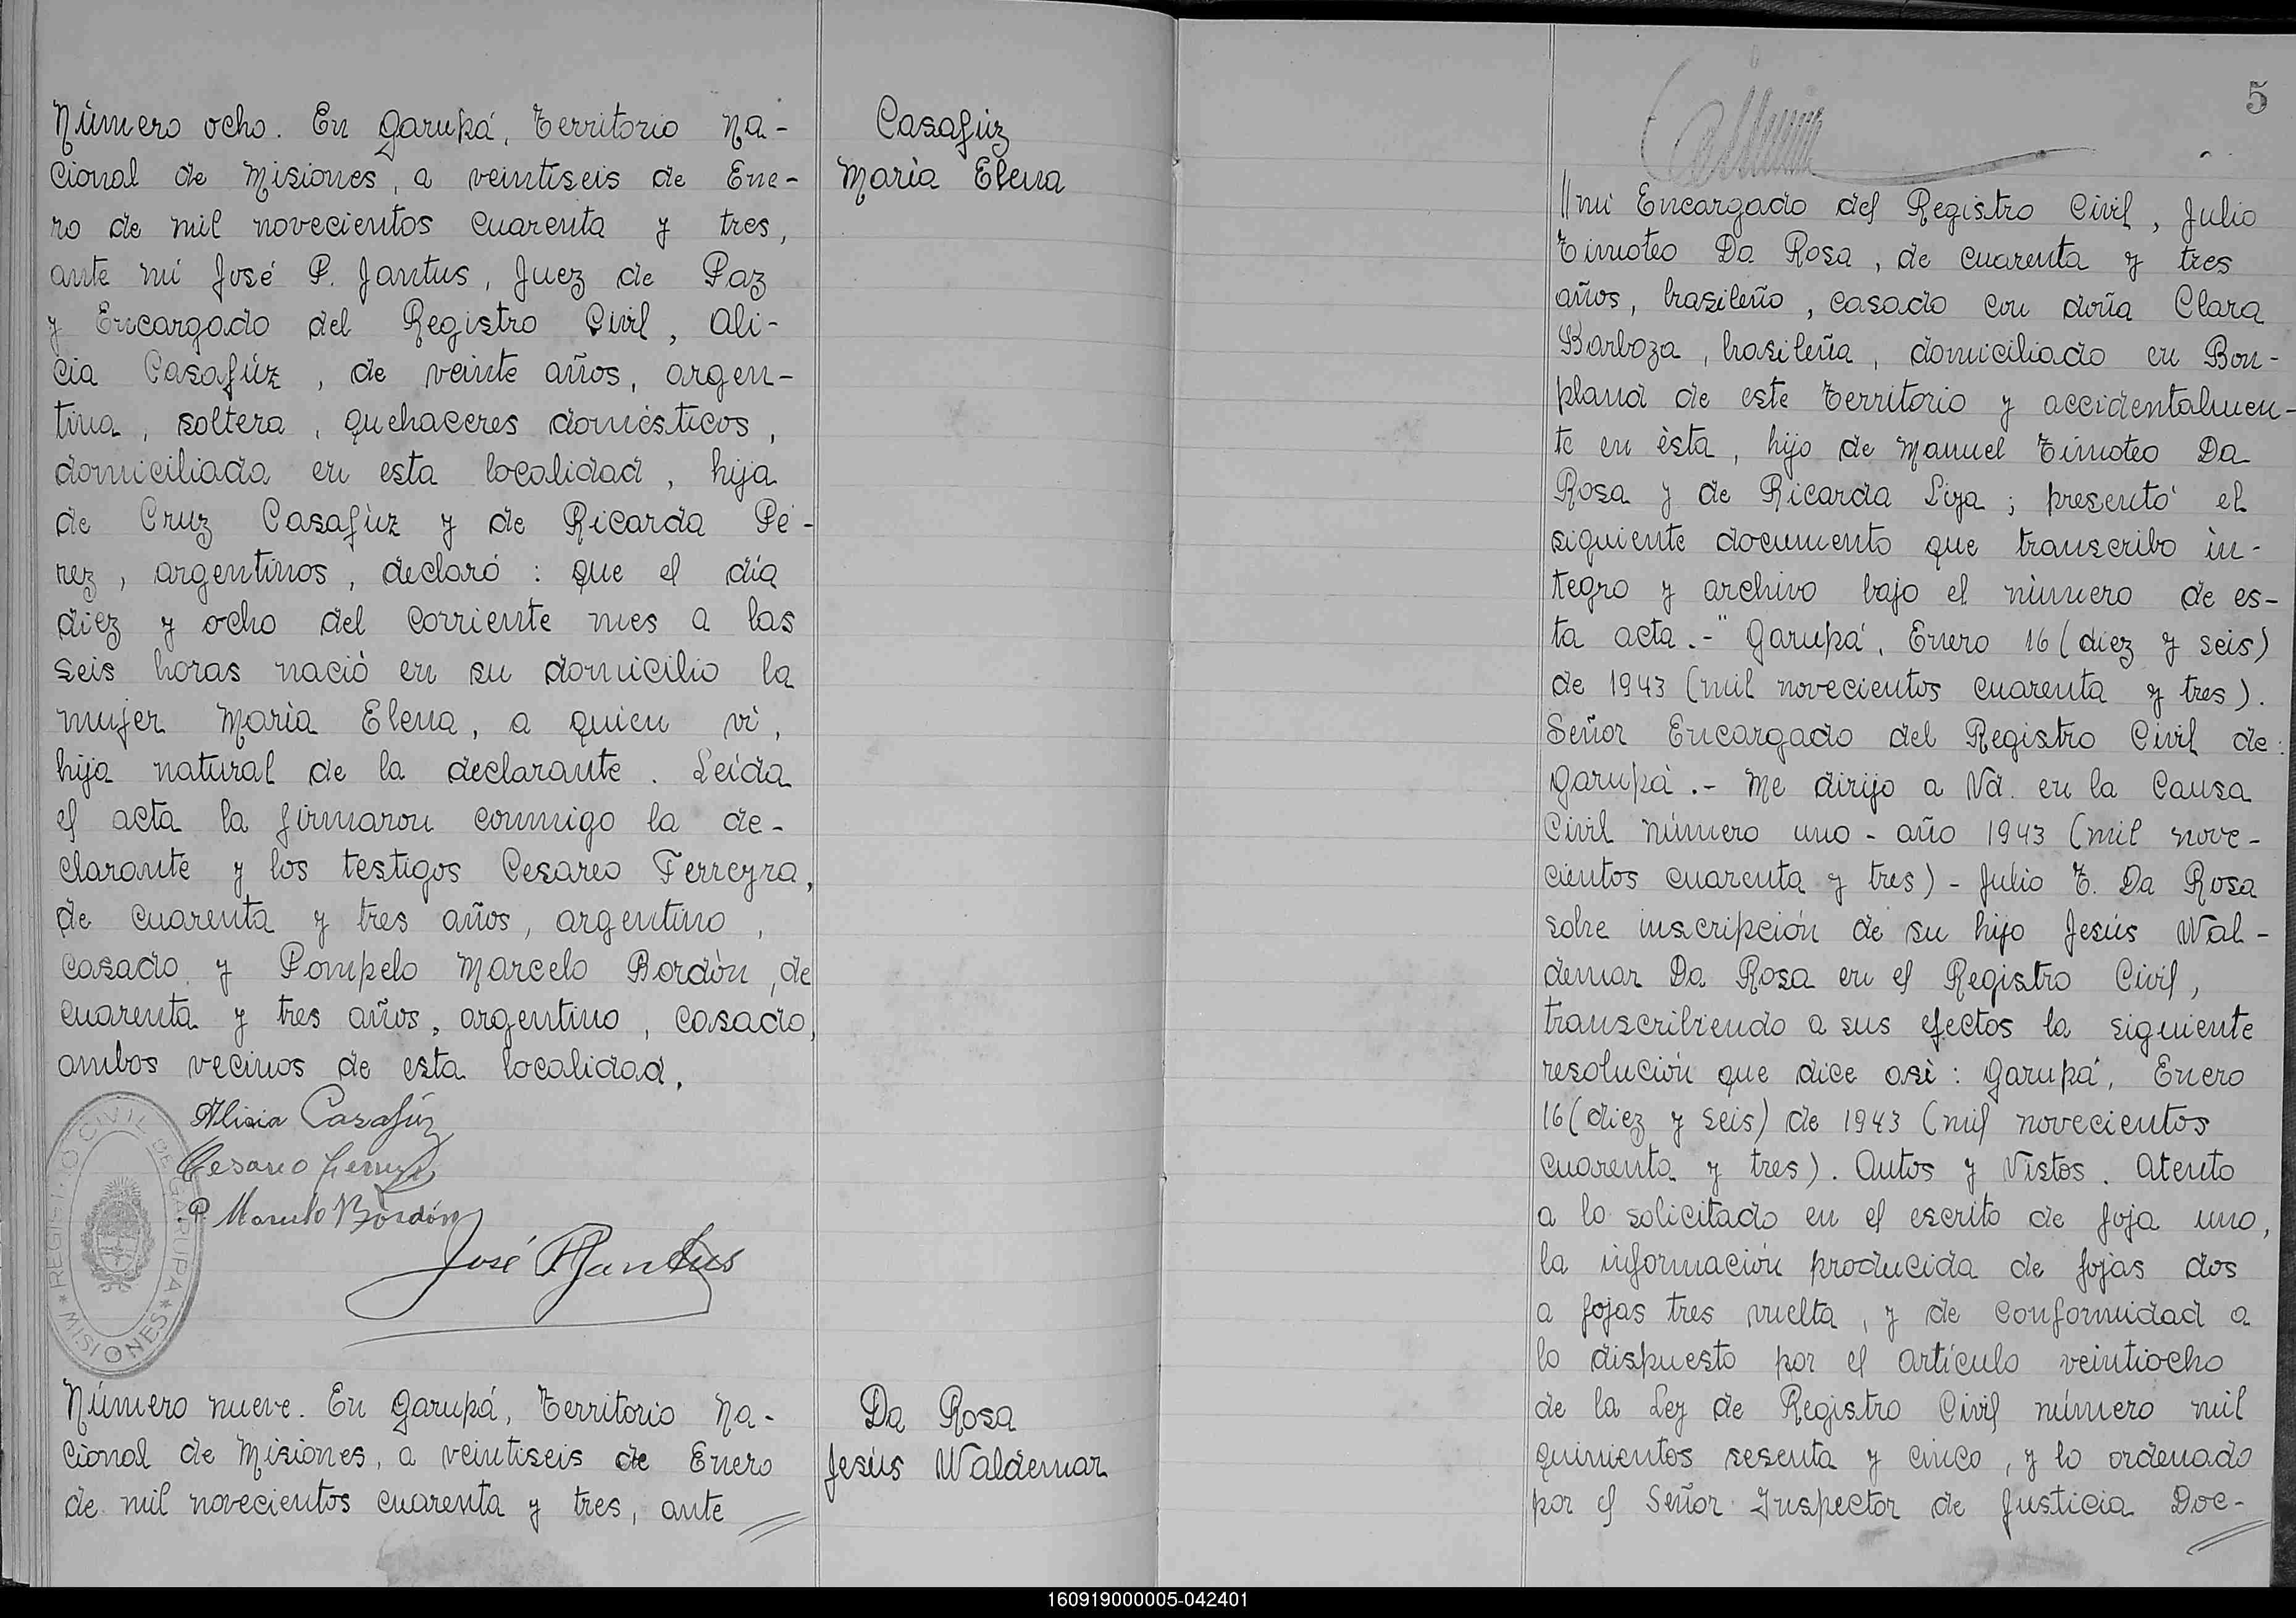 Número ocho. En Garupá, Territorio Na-
cional de Misiones, a veintiseis de Ene-
ro de mil novecientos cuarenta y tres,
ante mi José P. Jantus, Juez de Paz
y Encargado del Registro Civil, Ali-
cia Casafúz, de veinte años, argen-
tina, soltera, quehaceres domésticos,
domiciliada en esta localidad, hija
de Cruz Casafùz y de Ricarda Pé-
rez, argentinos, declaró: que el día
diez y ocho del corriente mes a las
seis horas nació en su domicilio la
mujer Marìa Elena, a quien vi,
hija natural de la declarante. Leída
el acta la firmaron conmigo la de-
clarante y los testigos Cesareo Ferreyra,
de cuarenta y tres años, argentino,
casado y Pompelo Marcelo Bordòn, de
cuarenta y tres años, argentino, casado,
ambos vecinos de esta localidad.
Alicia Casafúz
Cesareo
P. Marcelo Bordón
José P Jantus
REGISTRO CIVIL DE GARUPA
* MISIONES *
Número nueve. En Garupá, Territorio Na-
cional de Misiones, a veintiseis de Enero
de mil novecientos cuarenta y tres, ante
Casafúz
Marìa Elena
Da Rosa
Jesús Waldemar
5
//mi Encargado del Registro Civil, Julio
Timoteo Da Rosa, de cuarenta y tres
años, brasileño, casado con doña Clara
Barboza, brasileña, domiciliado en Bon-
pland de este Territorio y accidentalmen-
te en èsta, hijo de Manuel Timoteo Da
Rosa y de Ricarda Liza; presentó el
siguiente documento que transcribo ìn-
tegro y archivo bajo el nùmero de es-
ta acta.-" Garupá, Enero 16 (diez y seis)
de 1943 (mil novecientos cuarenta y tres).
Señor Encargado del Registro Civil de:
Garupà.- Me dirijo a Vd. en la Causa
Civil número uno - año 1943 (mil nove-
cientos cuarenta y tres) - Julio T. Da Rosa
sobre inscripción de su hijo Jesús Wal-
demar Da Rosa en el Registro Civil,
transcribiendo a sus efectos la siguiente
resolución que dice asì: Garupá, Enero
16 (diez y seis) de 1943 (mil novecientos
cuarenta y tres). Autos y Vistos. Atento
a lo solicitado en el escrito de foja uno,
la información producida de fojas dos
a fojas tres vuelta, y de conformidad a
lo dispuesto por el artículo veintiocho
de la Ley de Registro Civil número mil
quinientos sesenta y cinco, y lo ordenado
por el Señor Inspector de Justicia Doc-
160919000005-042401